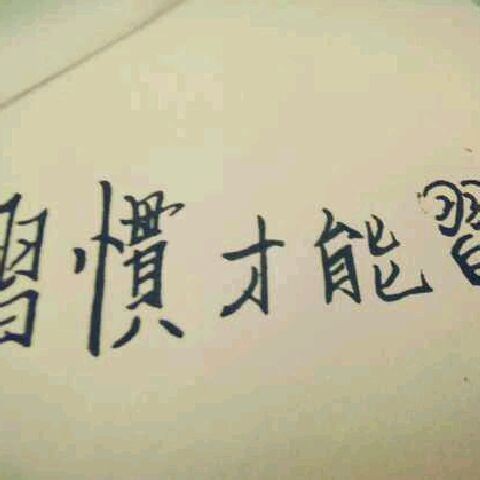 習慣才能習